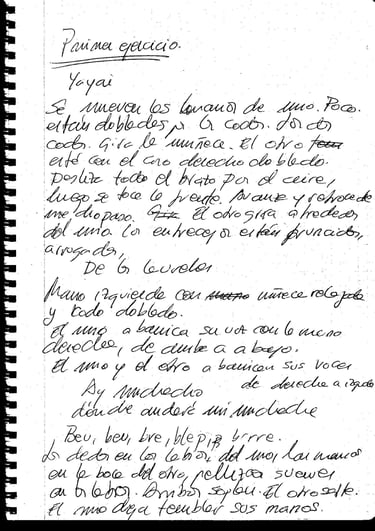 Primer ejercicio.
Yayai
Se mueven las manos de uno. Poco.
están doblados los codos. Los dos
codos. Gira la muñeca. El otro
está con el codo derecho doblado.
Desliza todo el brazo por el aire,
luego se toca la frente. Avanza y retrocede
medio paso. El otro gira alrededor
del uno. Los entrecejos están fruncidos,
arrugados,
De la
Mano izquierda con muñeca relajada
y codo doblado.
El uno abanica su voz con la mano
derecha, de arriba a abajo.
El uno y el otro abanican sus voces
de derecha a izqda
Ay muchacho
dónde andará mi muchacho
Beu, beu, bre, blep, brrre.
Los dedos en los labios del uno, las manos
en la boca del otro, pellizcos suaves
en labios. Ambos soplan. El otro
El uno deja temblar sus manos.